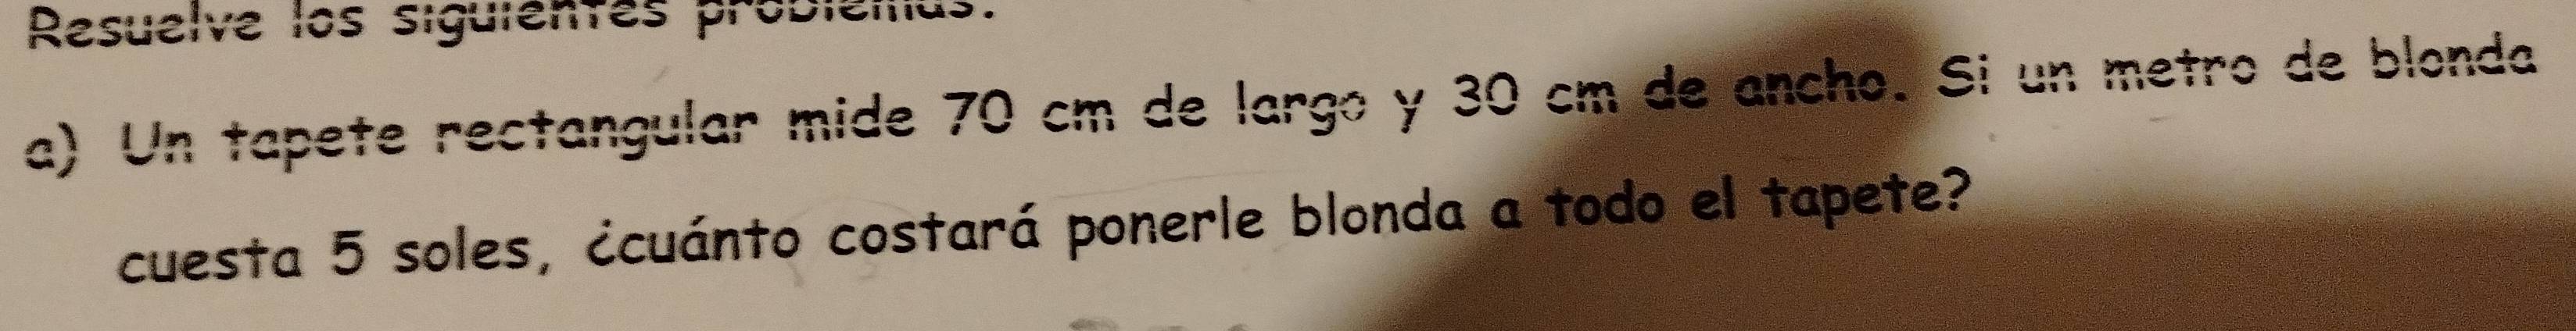 Resuelve los siguientes problemas.
a) Un tapete rectangular mide 70 cm de largo y 30 cm de ancho. Si un metro de blonda
cuesta 5 soles, ¿cuánto costará ponerle blonda a todo el tapete?